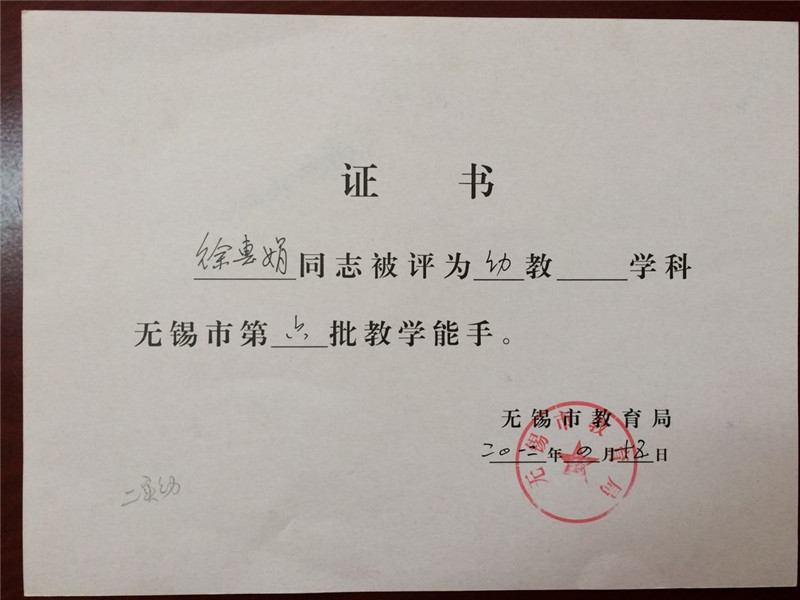 证 书
徐惠娟同志被评为幼教____学科
无锡市第六批教学能手。
无锡市教育局
二〇一二年四月十五日
无锡市教育局